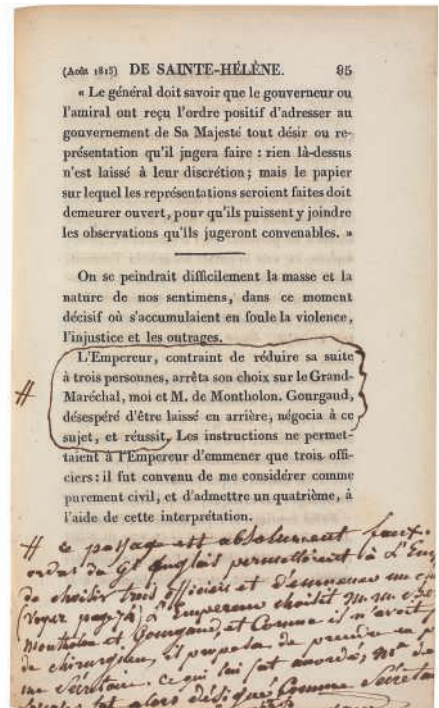 (Août 1815) DE SAINTE-HÉLÈNE. 95
« Le général doit savoir que le gouverneur ou
l'amiral ont reçu l'ordre positif d'adresser au
gouvernement de Sa Majesté tout désir ou re-
présentation qu'il jugera faire : rien là-dessus
n'est laissé à leur discrétion; mais le papier
sur lequel les représentations seroient faites doit
demeurer ouvert, pour qu'ils puissent y joindre
les observations qu'ils jugeront convenables. »
On se peindrait difficilement la masse et la
nature de nos sentimens, dans ce moment
décisif où s'accumulaient en foule la violence,
l'injustice et les outrages.
L'Empereur, contraint de réduire sa suite
à trois personnes, arrêta son choix sur le Grand-
# Maréchal, moi et M. de Montholon. Gourgaud,
désespéré d'être laissé en arrière, négocia à ce
sujet, et réussit. Les instructions ne permet-
taient à l'Empereur d'emmener que trois offi-
ciers : il fut convenu de me considérer comme
purement civil, et d'admettre un quatrième, à
l'aide de cette interprétation.
# ce passage est absolument faux.
ordres du Gt anglais permettoient à L'Em
de choisir trois officiers et d'emmener un
(voyez page 74) L'Empereur choisit m.m.
montholon et Gourgaud, et Comme il n'avoit
de chirurgien, il proposa de prendre
un Sécrétaire. ce qui lui fut accordé; mr. de
fut alors désigné Comme Sécrétai